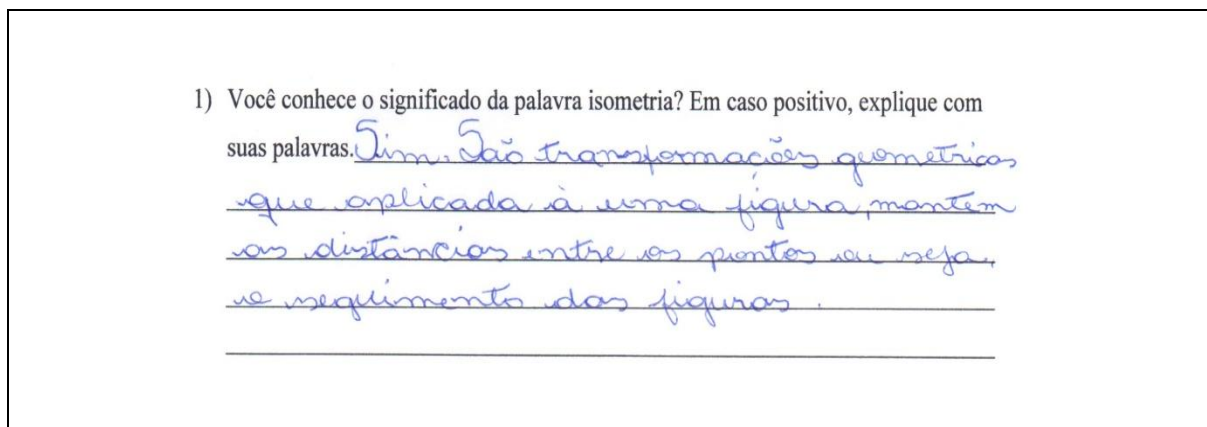 1) Você conhece o significado da palavra isometria? Em caso positivo, explique com
suas palavras. Sim. São transformações geometricas
que aplicada à uma figura, mantem
as distâncias entre os pontos ou seja,
o seguimento das figuras.